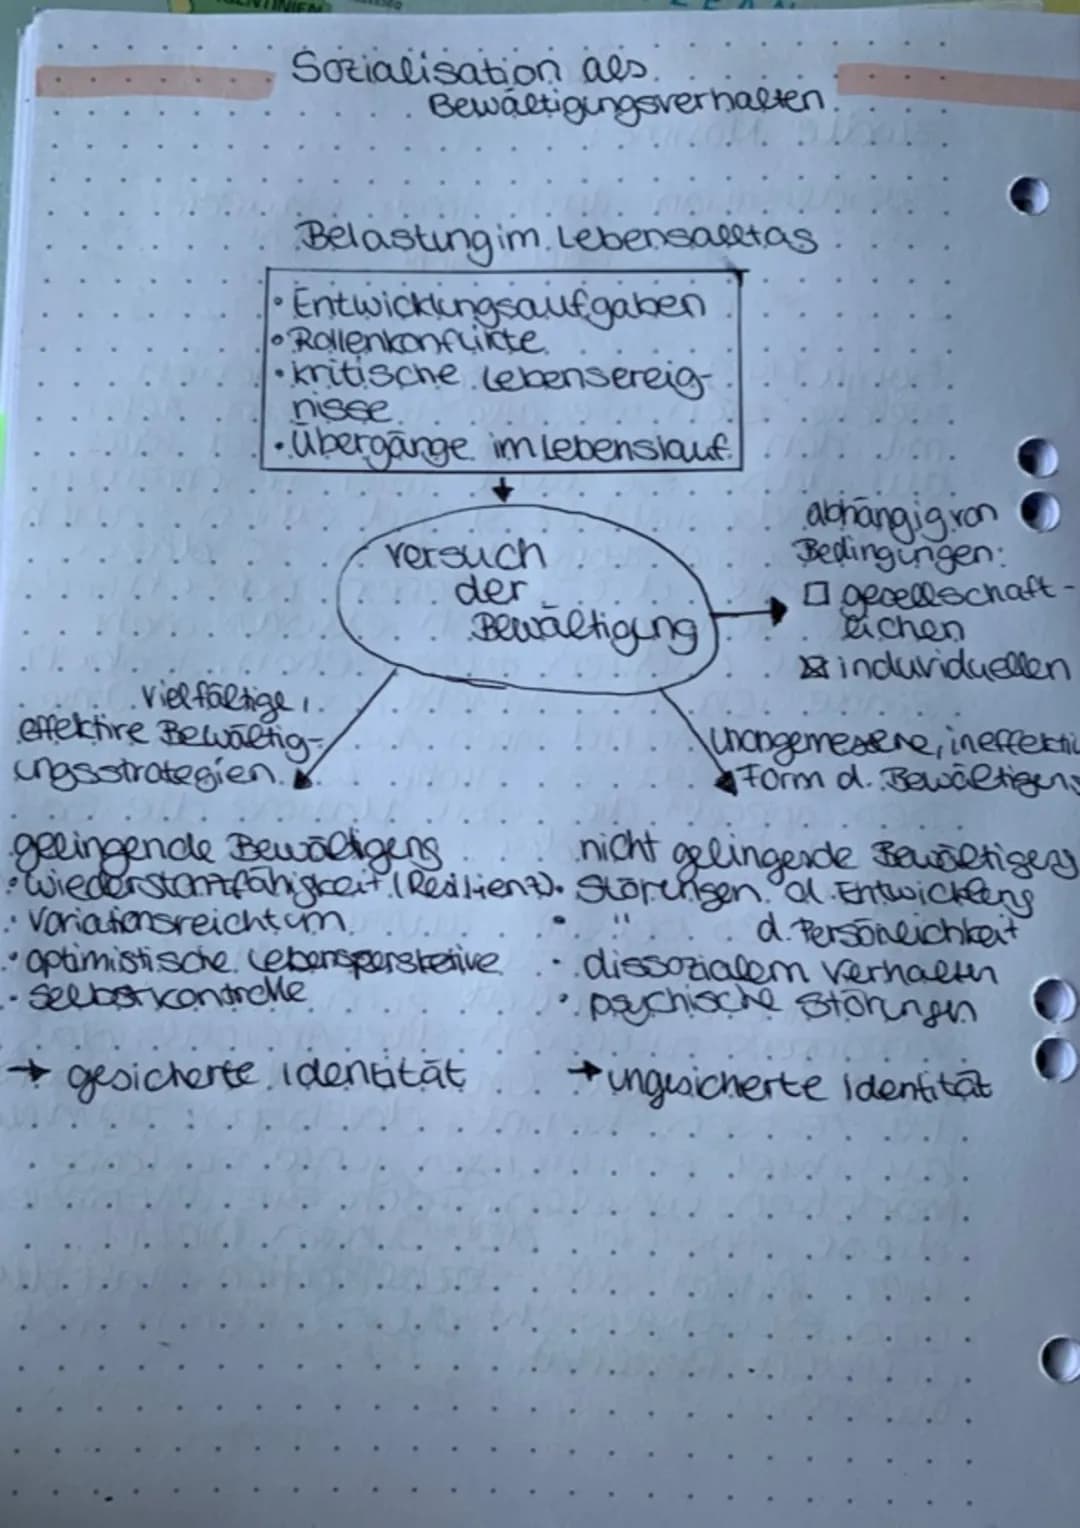 Sozialisation als
Bewältigungsverhalten
Belastung im Lebensalltas
• Entwicklungsaufgaben
• Rollenkonflikte
• kritische Lebensereig-
nisse
• Übergänge im Lebenslauf
Versuch
der
Bewältigung
abhängig von
Bedingungen:
gesellschaft-
lichen
induviduellen
vielfältige,
effektive Bewältig-
ungsstrategien
Unangemessene, ineffektiv
Form d. Bewältigung
gelingende Bewältigung
• Wiederstandsfähigkeit (Resilienz)
• Variationsreichtum
• optimistische Lebensperspektive
• Selbstkontrolle
→ gesicherte Identität
nicht gelingende Bewältigung
• Störungen d. Entwicklung
• " d. Persönlichkeit
• dissozialem Verhalten
• psychische Störungen
→ ungesicherte Identität